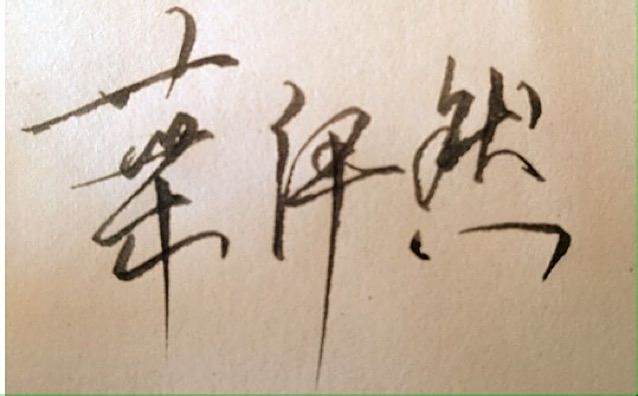 葉伊然